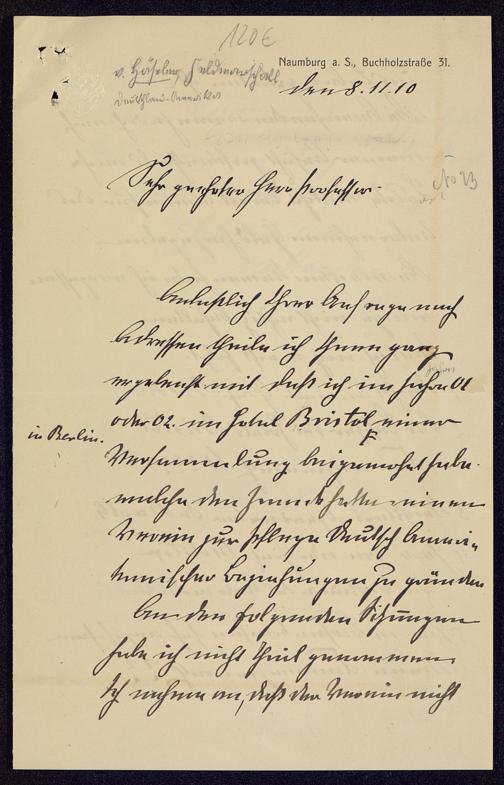 120€
v. Häseler, Feldmarschall
Deutschland-Amerika
Naumburg a. S., Buchholzstraße 31.
den 8.11.10
No 23
Sehr geehrter Herr Professor.
Anläßlich Ihrer Anfrage nach
Adressen theile ich Ihnen ganz
ergebenst mit daß ich im Jahre 01
oder 02. im Hotel Bristol einer
in Berlin.
Versammlung beigewohnt habe.
welche den Zweck hatte einen
Verein zur Pflege Deutsch Ameri-
kanischer Beziehungen zu gründen
An den folgenden Sitzungen
habe ich nicht theil genommen.
Ich nehme an, daß der Verein nicht